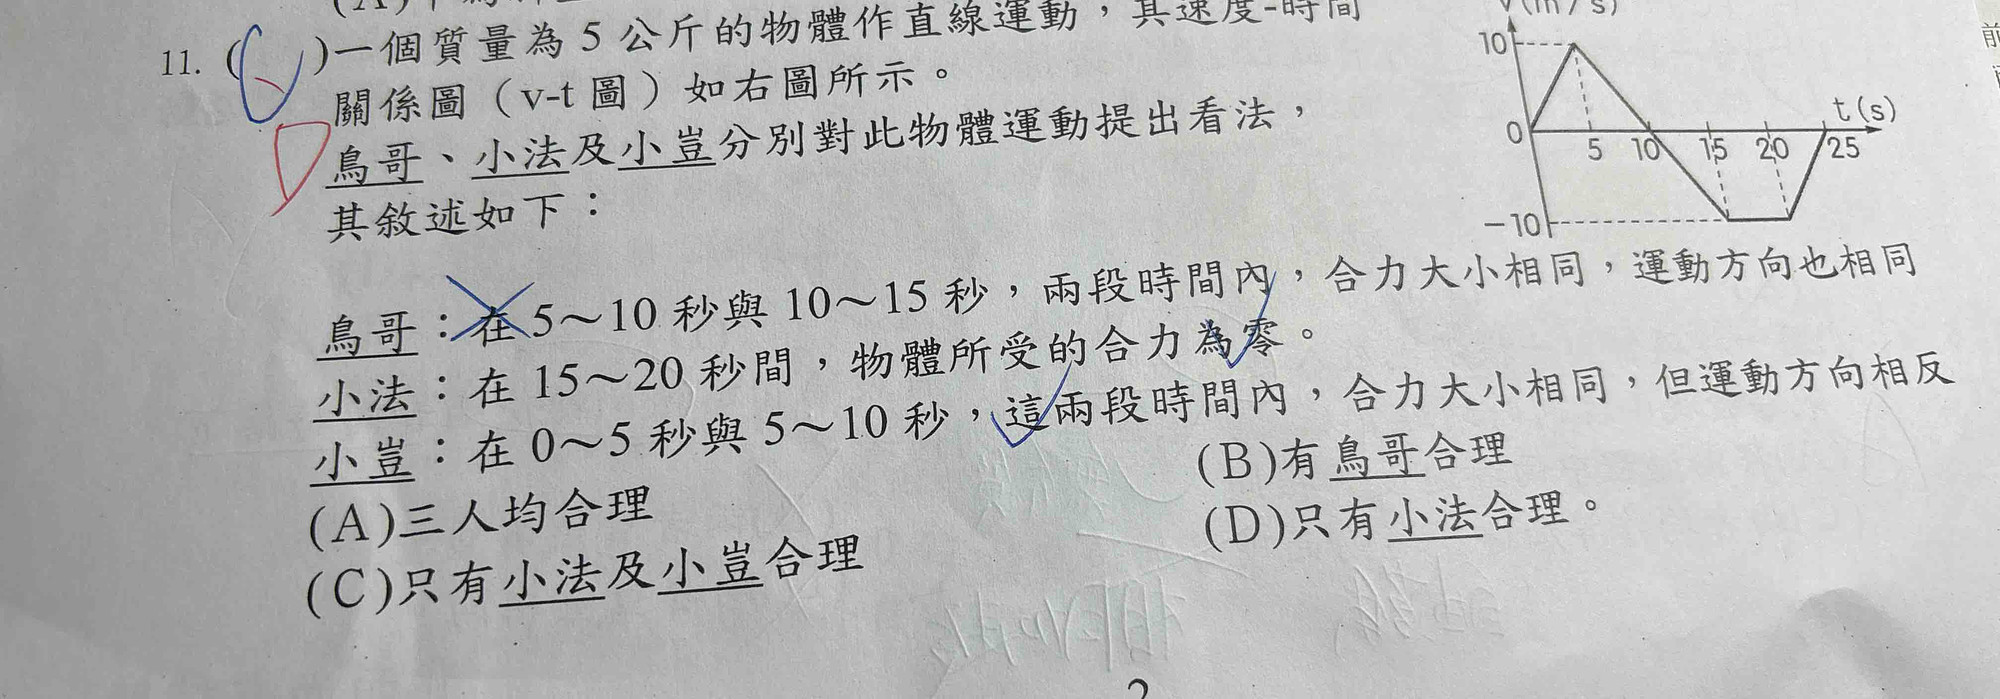 11. ( C )一個質量為 5 公斤的物體作直線運動，其速度-時間
關係圖（v-t 圖）如右圖所示。
D
鳥哥、小法及小豈分別對此物體運動提出看法，
其敘述如下：
v(m/s)
10
0
5 10 15 20 25
t(s)
-10
鳥哥：在 5～10 秒與 10～15 秒，兩段時間內，合力大小相同，運動方向也相同
小法：在 15～20 秒間，物體所受的合力為零。
小豈：在 0～5 秒與 5～10 秒，這兩段時間內，合力大小相同，但運動方向相反
(A)三人均合理
(B)有鳥哥合理
(C)只有小法及小豈合理
(D)只有小法合理。